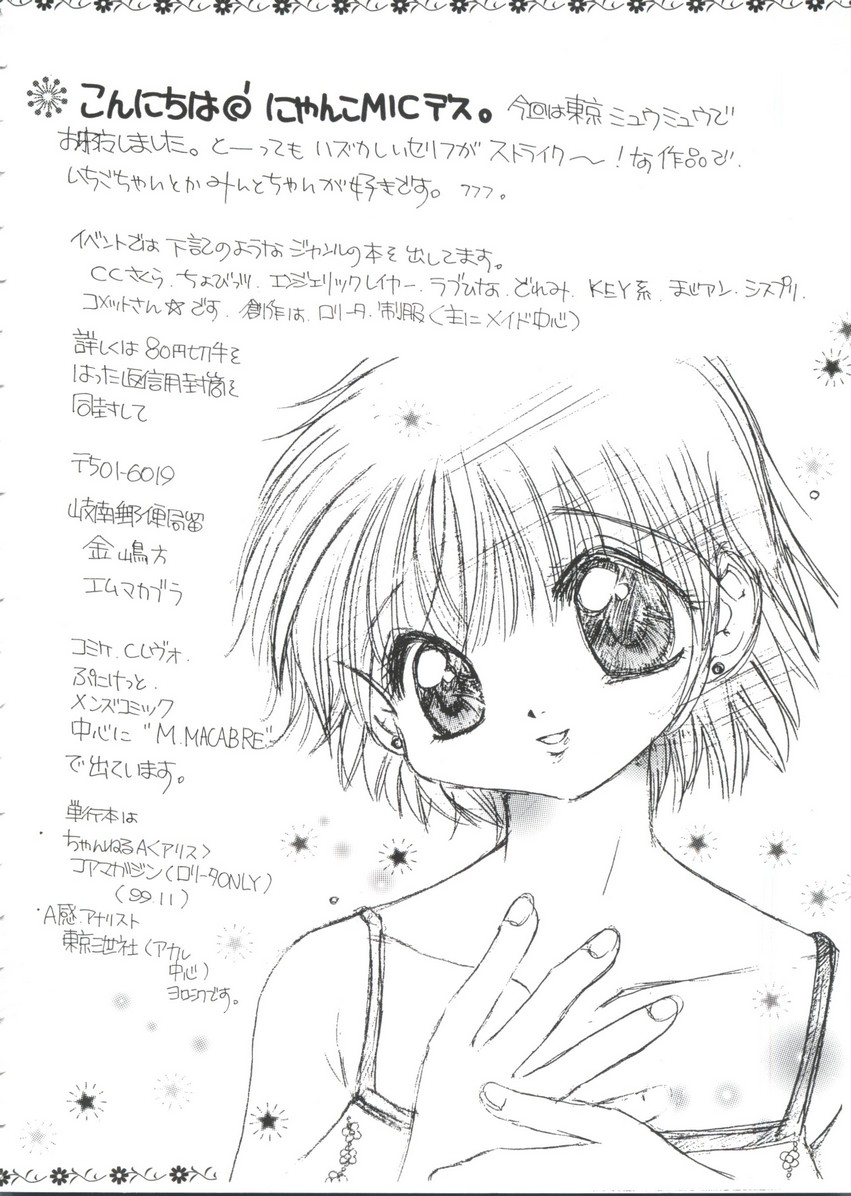 こんにちは にゃんこMICデス。今回は東京ミュウミュウで
お邪魔しました。とーってもハズかしいセリフがストライク〜!な作品で、
いちごちゃんとかみんとちゃんが好きです。フフフ。
イベントでは下記のようなジャンルの本を出してます。
CCさくら、ちょびっツ、エンジェリックレイヤー、ラブひな、どれみ、KEY系、まじアン、シスプリ、
コメットさん☆です。創作は、ロリータ、制服(主にメイド中心)
詳しくは80円切手を
はった返信用封筒を
同封して
〒501-6019
岐南郵便局留
金嶋方
エムマカブラ
コミケ、Cレヴォ、
ぷにけっと、
メンズコミック
中心に"M.MACABRE"
で出ています。
単行本は
ちゃんねるA<アリス>
コアマガジン(ロリータONLY)
(99.11)
・A感アナリスト
東京三世社(アナル
中心)
ヨロシクです。